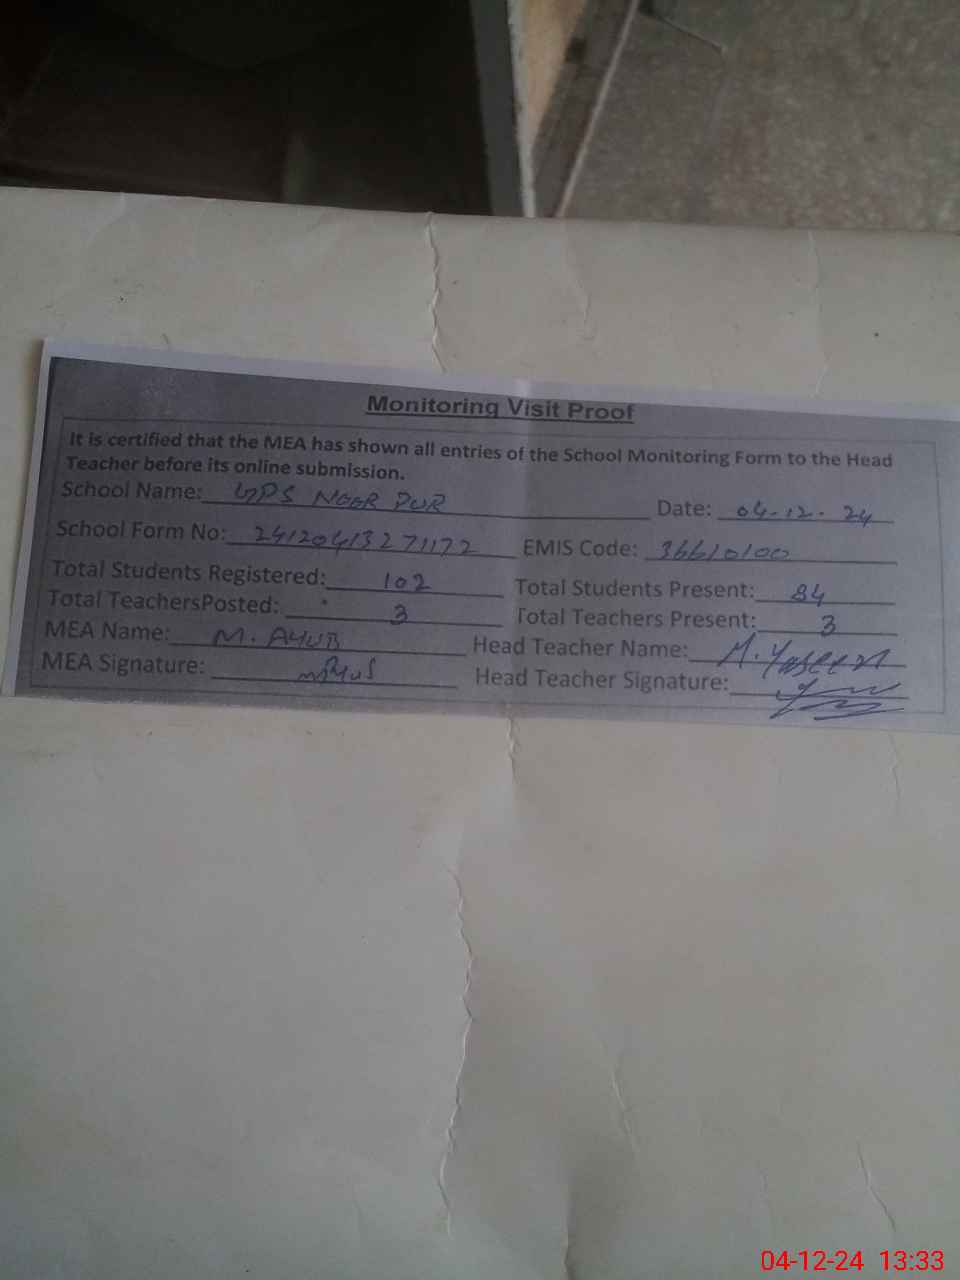 Monitoring Visit Proof
It is certified that the MEA has shown all entries of the School Monitoring Form to the Head
Teacher before its online submission.
School Name: GPS NOOR PUR Date: 04-12-24
School Form No: 24120413271172 EMIS Code: 36610100
Total Students Registered: 102 Total Students Present: 84
Total TeachersPosted: 3 Total Teachers Present: 3
MEA Name: M. AYUB Head Teacher Name: M. Yaseen
MEA Signature: Head Teacher Signature:
04-12-24 13:33